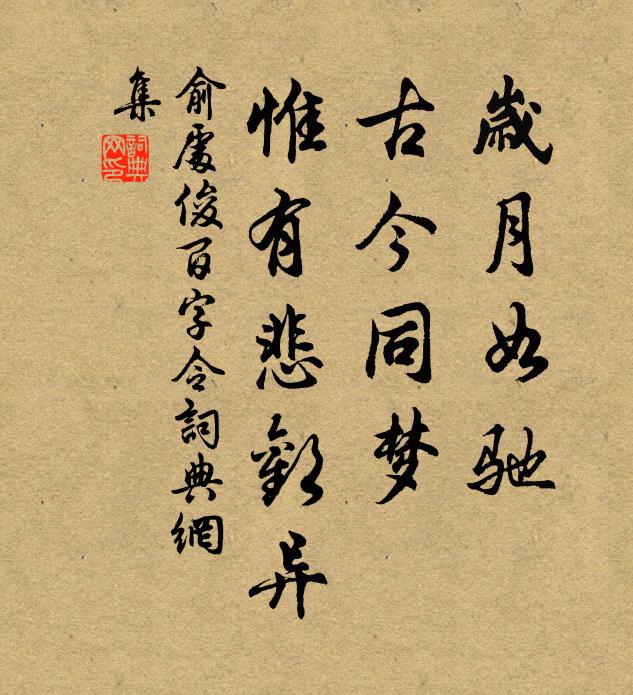 歲月如馳
古今同梦
惟有悲歡异
俞處俊百字令詞典網
集
詞典網印